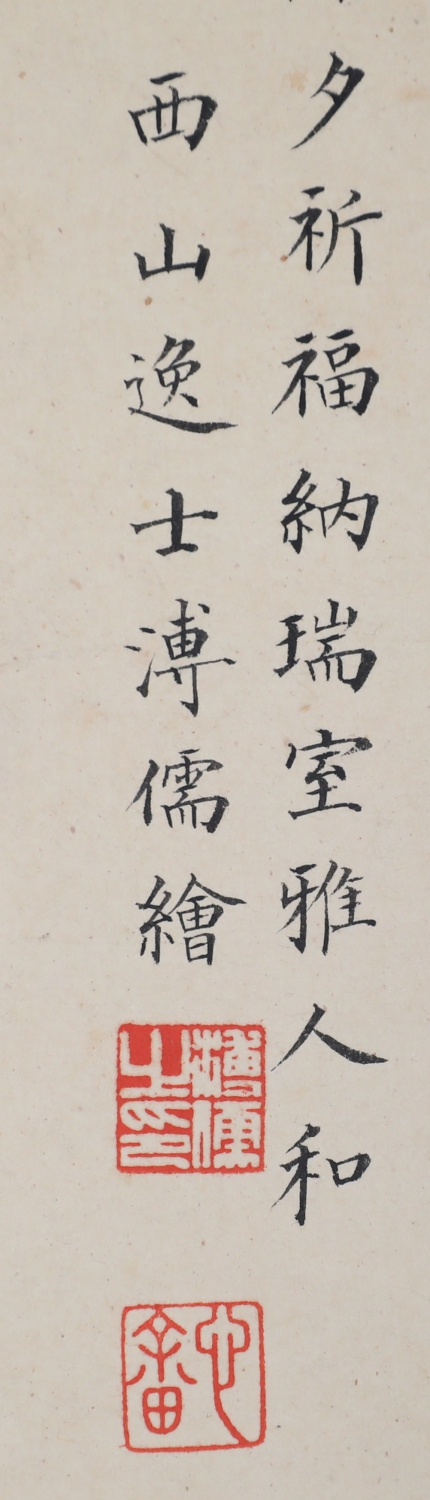 夕祈福納瑞室雅人和
西山逸士溥儒繪
溥儒之印
心畬